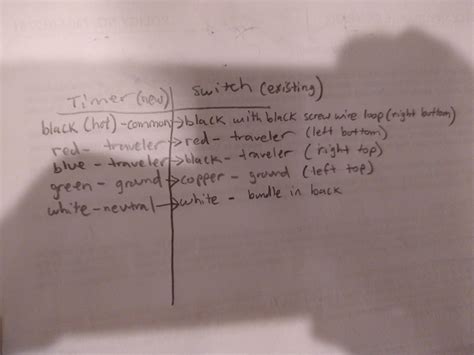 Timer (new) switch (existing)
black (hot) - common → black with black screw wire loop (right bottom)
red - traveler → red - traveler (left bottom)
blue - traveler → black - traveler (right top)
green - ground → copper - ground (left top)
white - neutral → white - bundle in back